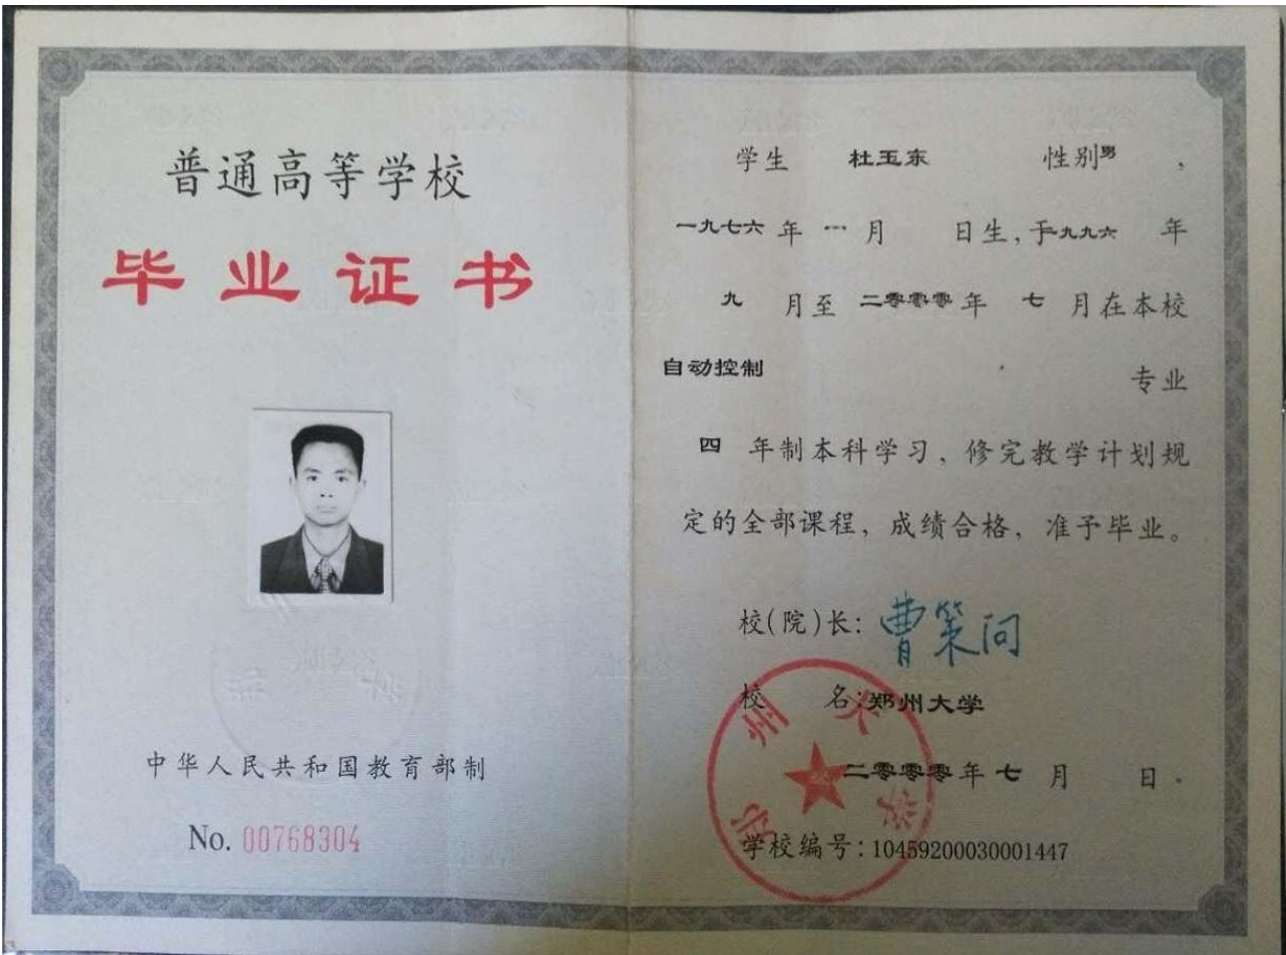 普通高等学校
毕业证书
中华人民共和国教育部制
No. 00768304
学生 杜玉东 性别男，
一九七六年 一月 日生，于一九九六 年
九 月至 二零零零年 七 月在本校
自动控制 专业
四 年制本科学习，修完教学计划规
定的全部课程，成绩合格，准予毕业。
校(院)长：曹策问
校 名：郑州大学
二零零零年七 月 日
学校编号：10459200030001447